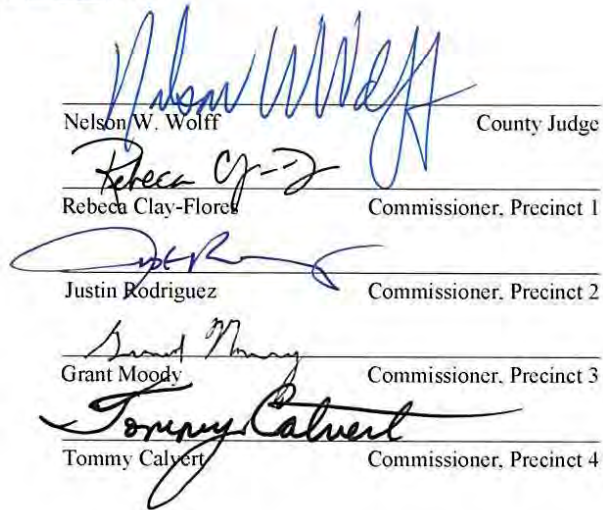 Nelson W Wolff
Nelson W. Wolff County Judge
Rebeca Cy-F
Rebeca Clay-Flores Commissioner, Precinct 1
Justin Rodriguez Commissioner, Precinct 2
Grant Moody
Grant Moody Commissioner, Precinct 3
Tommy Calvert
Tommy Calvert Commissioner, Precinct 4